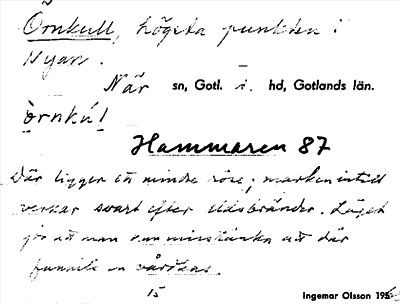 Örnkull, högsta punkten i
Nyan.
När sn, Gotl. s. hd, Gotlands län.
òrnkú!
Hammaren 87
Där ligger ett mindre röse; marken intill
verkar svart efter eldsbränder. Läget
gör att man kan misstänka att där
funnits en vårdkas.
15
Ingemar Olsson 195